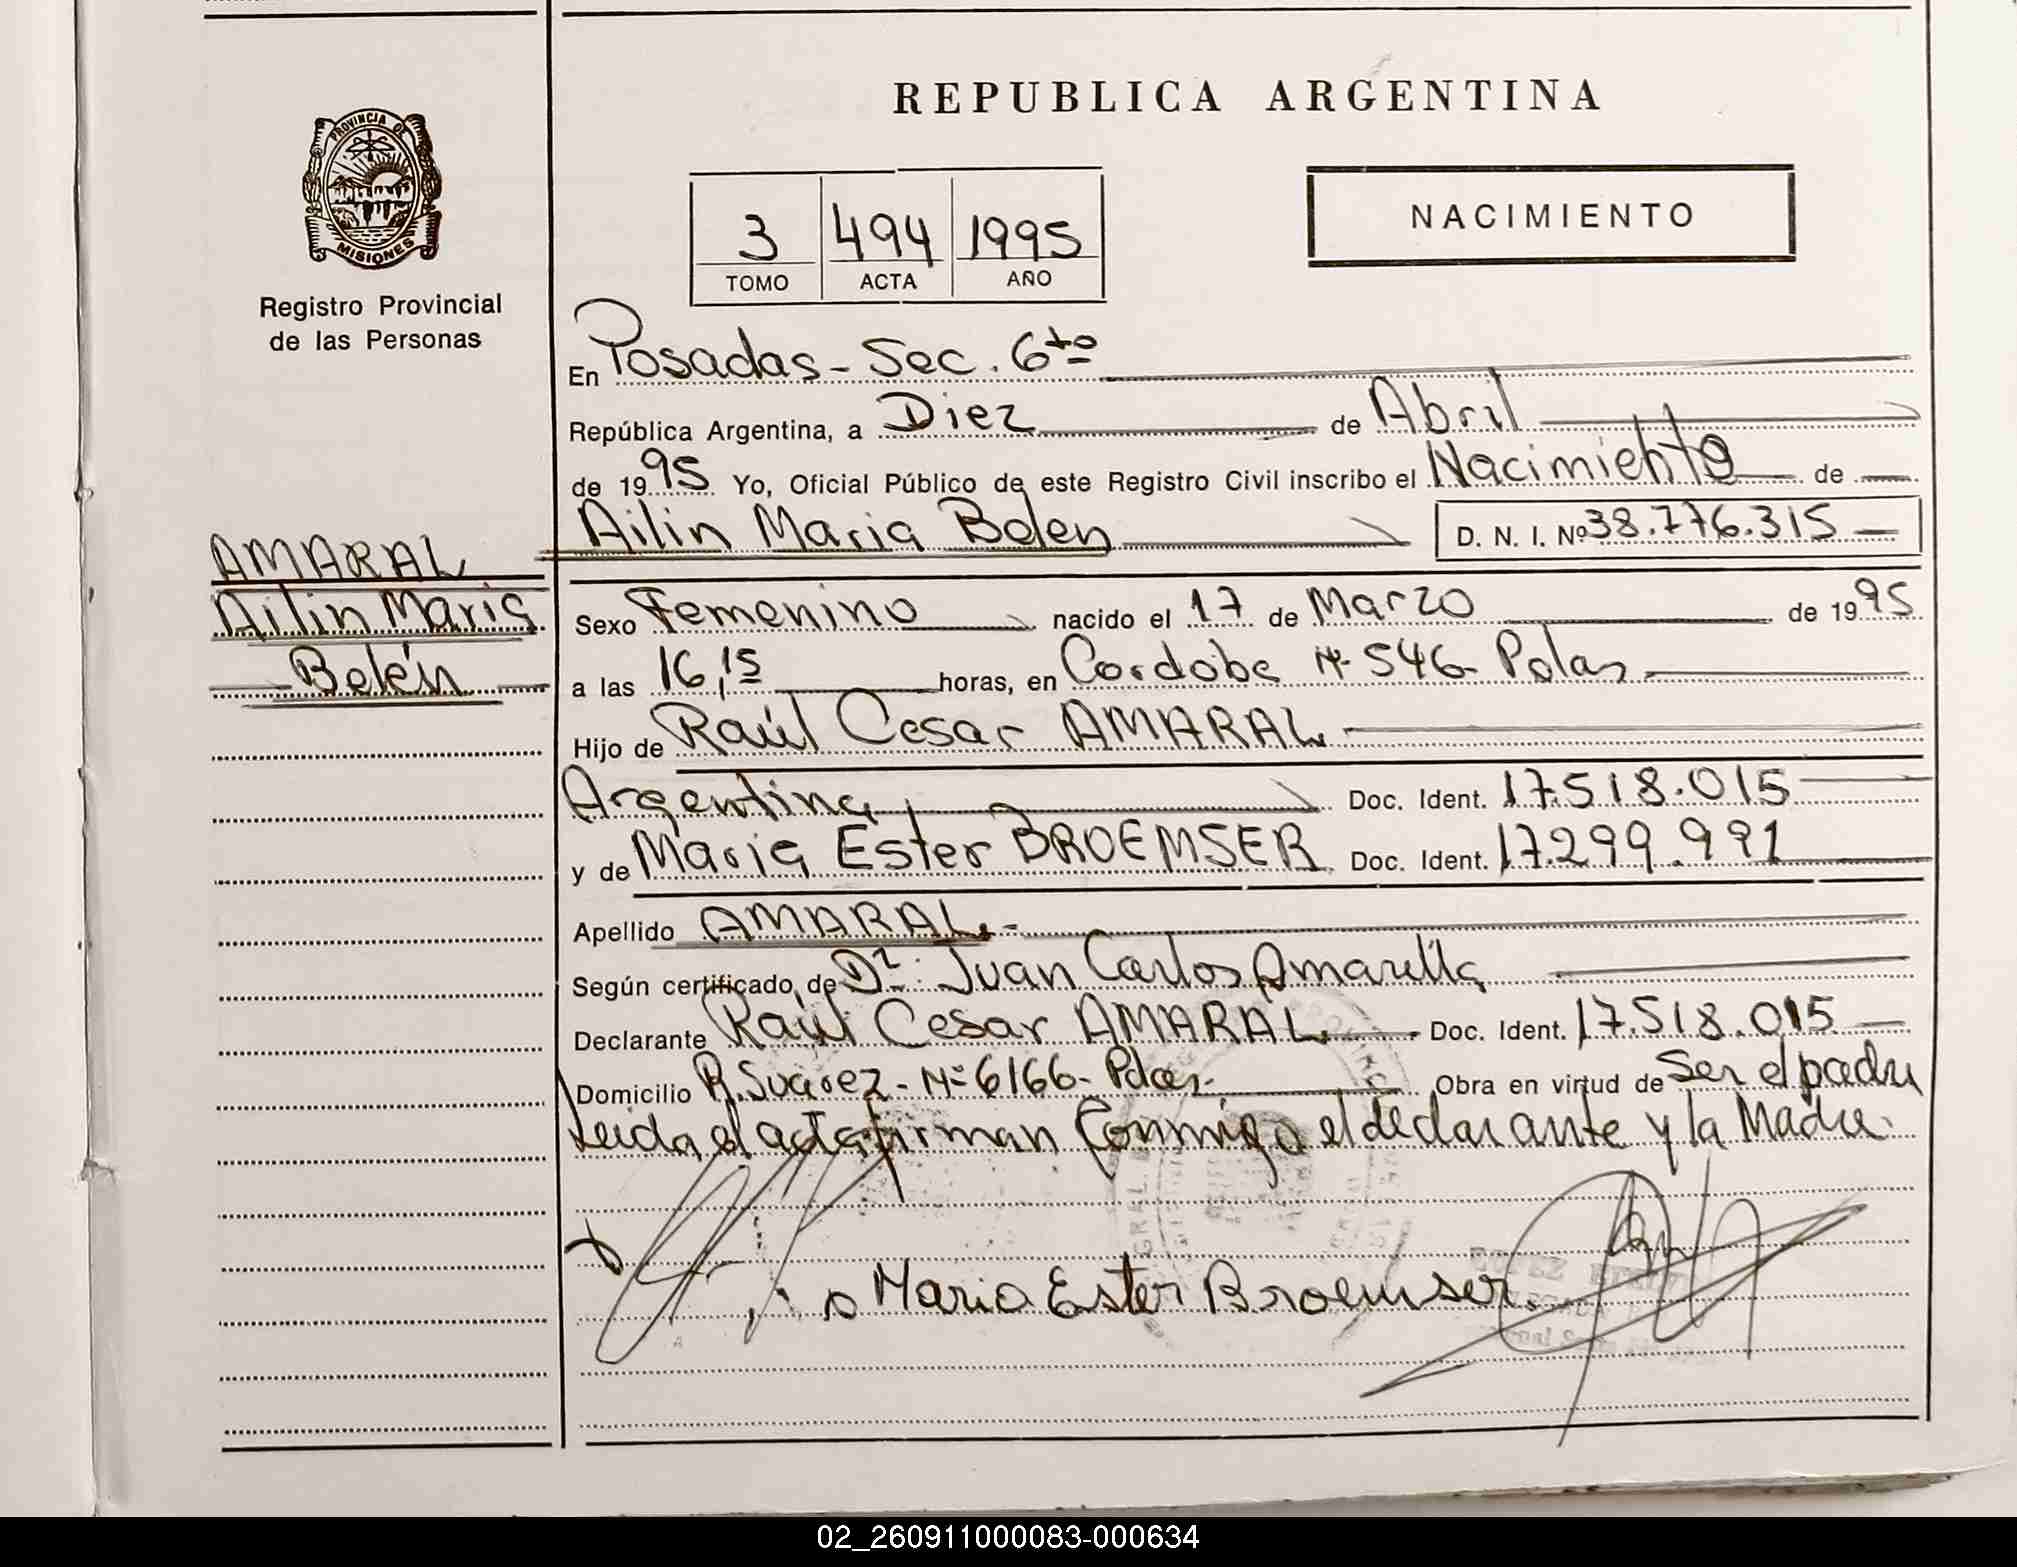 REPUBLICA ARGENTINA
PROVINCIA DE
MISIONES
Registro Provincial
de las Personas
3 494 1995
TOMO ACTA AÑO
NACIMIENTO
En Posadas - Sec. 6to
República Argentina, a Diez de Abril
de 1995 Yo, Oficial Público de este Registro Civil inscribo el Nacimiento de
Ailin Maria Belen D. N. I. Nº 38.776.315
AMARAL
Ailin Maria
Belén
Sexo Femenino nacido el 17 de Marzo de 1995
a las 16,15 horas, en Cordoba Nº 546-
Hijo de Raúl Cesar AMARAL
Argentina Doc. Ident. 17.518.015
y de Maria Ester BROEMSER Doc. Ident. 17.299.991
Apellido AMARAL.-
Según certificado de Dr: Juan Carlos Amarilla
Declarante Raúl Cesar AMARAL Doc. Ident. 17.518.015
Domicilio R. Suarez - Nº 6166- Obra en virtud de Ser el padre
Leida el acta firman Conmigo el declarante y la Madre.
Maria Ester Broemser.
02_260911000083-000634